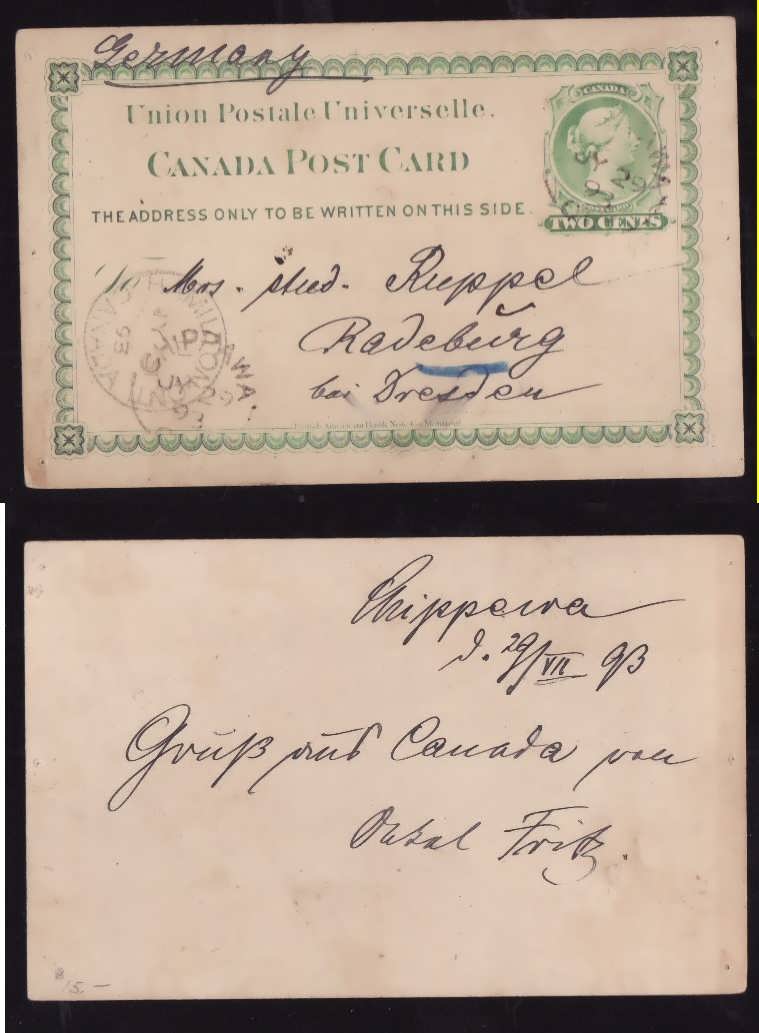 Germany
Union Postale Universelle.
CANADA POST CARD
THE ADDRESS ONLY TO BE WRITTEN ON THIS SIDE.
CANADA
TWO CENTS
JY 29
To Mrs. stud. Ruppel
Radeburg
bei Dresden
HAMILTON
CANADA
JY 29
93
Chippewa
d. 29/VII 93
Gruß aus Canada von
Onkel Fritz.
15.–